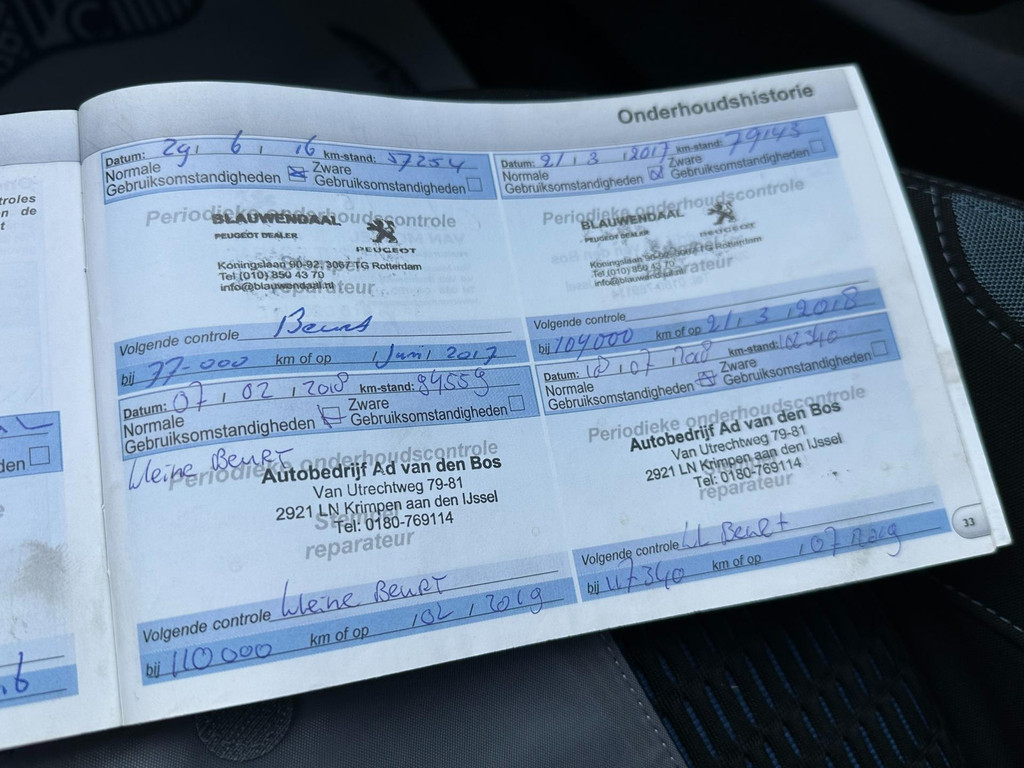 Onderhoudshistorie
Datum: 29, 6, 16 km-stand: 57254
Normale Gebruiksomstandigheden ☒ Zware Gebruiksomstandigheden ☐
Periodieke onderhoudscontrole
BLAUWENDAAL
PEUGEOT DEALER
PEUGEOT
Koningslaan 90-92, 3067 TG Rotterdam
Tel (010) 850 43 70
info@blauwendaal.nl
reparateur
Volgende controle Beurt
bij 77-000 km of op 1 Juni 2017
Datum: 21, 3, 2017 km-stand: 79143
Normale Gebruiksomstandigheden ☒ Zware Gebruiksomstandigheden ☐
Periodieke onderhoudscontrole
BLAUWENDAAL
PEUGEOT DEALER
PEUGEOT
Koningslaan 90-92, 3067 TG Rotterdam
Tel (010) 850 43 70
info@blauwendaal.nl
reparateur
Volgende controle
bij 104000 km of op 21, 3, 2018
Datum: 07, 02, 2018 km-stand: 94559
Normale Gebruiksomstandigheden ☒ Zware Gebruiksomstandigheden ☐
kleine Beurt
Periodieke onderhoudscontrole
Autobedrijf Ad van den Bos
Van Utrechtweg 79-81
2921 LN Krimpen aan den IJssel
Stempel
Tel: 0180-769114
reparateur
Volgende controle kleine Beurt
bij 110000 km of op , 02, 2019
Datum: 18, 07, 2018 km-stand: 102340
Normale Gebruiksomstandigheden ☒ Zware Gebruiksomstandigheden ☐
Periodieke onderhoudscontrole
Autobedrijf Ad van den Bos
Van Utrechtweg 79-81
2921 LN Krimpen aan den IJssel
Tel: 0180-769114
reparateur
Volgende controle kl Beurt
bij 117340 km of op , 07 2019
33